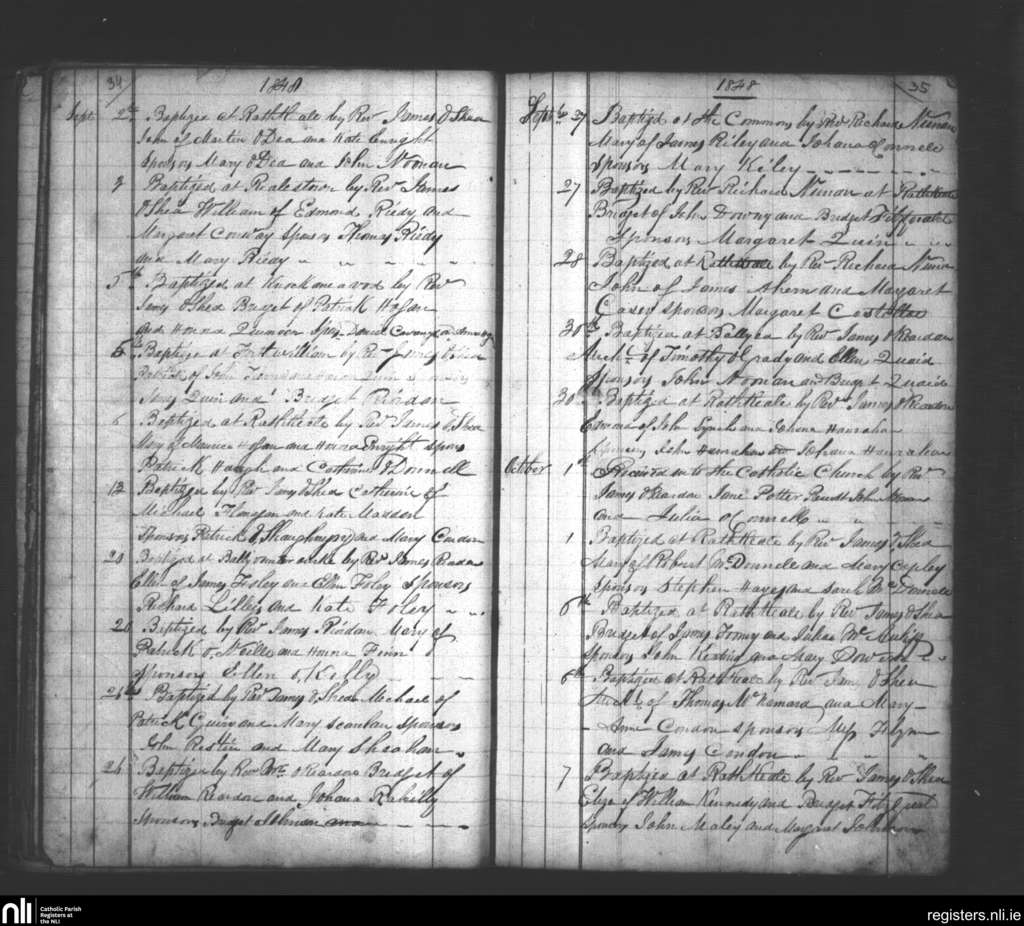 34
1848
Sept 2nd Baptized at Rathkeale by Revd James O Shea
John of Martin O Dea and Kate Enright
Sponsors Mary O Dea and John Noonan
3 Baptized at by Revd James
O Shea William of Edmond Riedy and
Margaret Conway Sponsors Thomas Riedy
and Mary Riedy
5th Baptized at by Revd
James O Shea Bridget of Patrick Hogan
and Honna
5th Baptized at Fortwilliam by Revd James O Shea
Patrick of John
James Quin and Bridget Reardon
6 Baptized at Rathkeale by Revd James O Shea
Mary of Maurice Hogan and Honna Enright Spons
Patrick Haugh and Catherine O Donnell
13 Baptized by Revd James O Shea Catherine of
Michael Flanagan and Kate Madden
Sponsors Patrick O Shaughnessy and Mary Condon
20 Baptized at by Revd James Riordan
Ellen of James Foley and Ellen Foley Sponsors
Richard Lilly and Kate Foley
20 Baptized by Revd James Riordan Mary of
Patrick O Neille and Honna Finn
Sponsors Ellen O Kelly
24 Baptized by Revd James O Shea Michael of
Patrick Guirin and Mary Scanlan Sponsors
John and Mary Sheahan
24 Baptized by Revd Wm O Reardon Bridget of
William Reardon and Johana Rahilly
Sponsors Bridget
35
1848
Septbr 27 Baptized at the Commons by Revd Richard Nunan
Mary of James Riley and Johana Connell
Sponsors Mary Kiley
27 Baptized by Revd Richard Nunan at Rathkeale
Bridget of John Downy and Bridget Fitzgerald
Sponsors Margaret Quin
28 Baptized at Rathkeale by Revd Richard Nunan
John of James Ahern and Margaret
Casey Sponsors Margaret Costelloe
30th Baptized at Ballyea by Revd James O Reardan
Michl of Timothy O Grady and Ellen Quaid
Sponsors John Noonan and Bridget Quaid
30th Baptized at Rathkeale by Revd James O Reardon
Edmond of John Lynch and Johana Hanrahan
Sponsors John Hanrahan and Johana Hanrahan
October 1st Received into the Catholic Church by Revd
James O Reardan Jane Potter Present John
and Julia O Connell
1 Baptized at Rathkeale by Revd James O Shea
Mary of Robert McDonnell and Mary Copley
Sponsors Stephen Hayes and Sarah McDonnell
6th Baptized at Rathkeale by Revd James O Shea
Bridget of James and Julia
Sponsors John and Mary
6th Baptized at Rathkeale by Revd James O Shea
Michl of Thomas McNamara and Mary
Ann Condon Sponsors
and James Condon
7 Baptized at Rathkeale by Revd James O Shea
Eliza of William Kennedy and Bridget
Sponsors John Mealey and Margaret
nli
Catholic Parish
Registers at
the NLI
registers.nli.ie